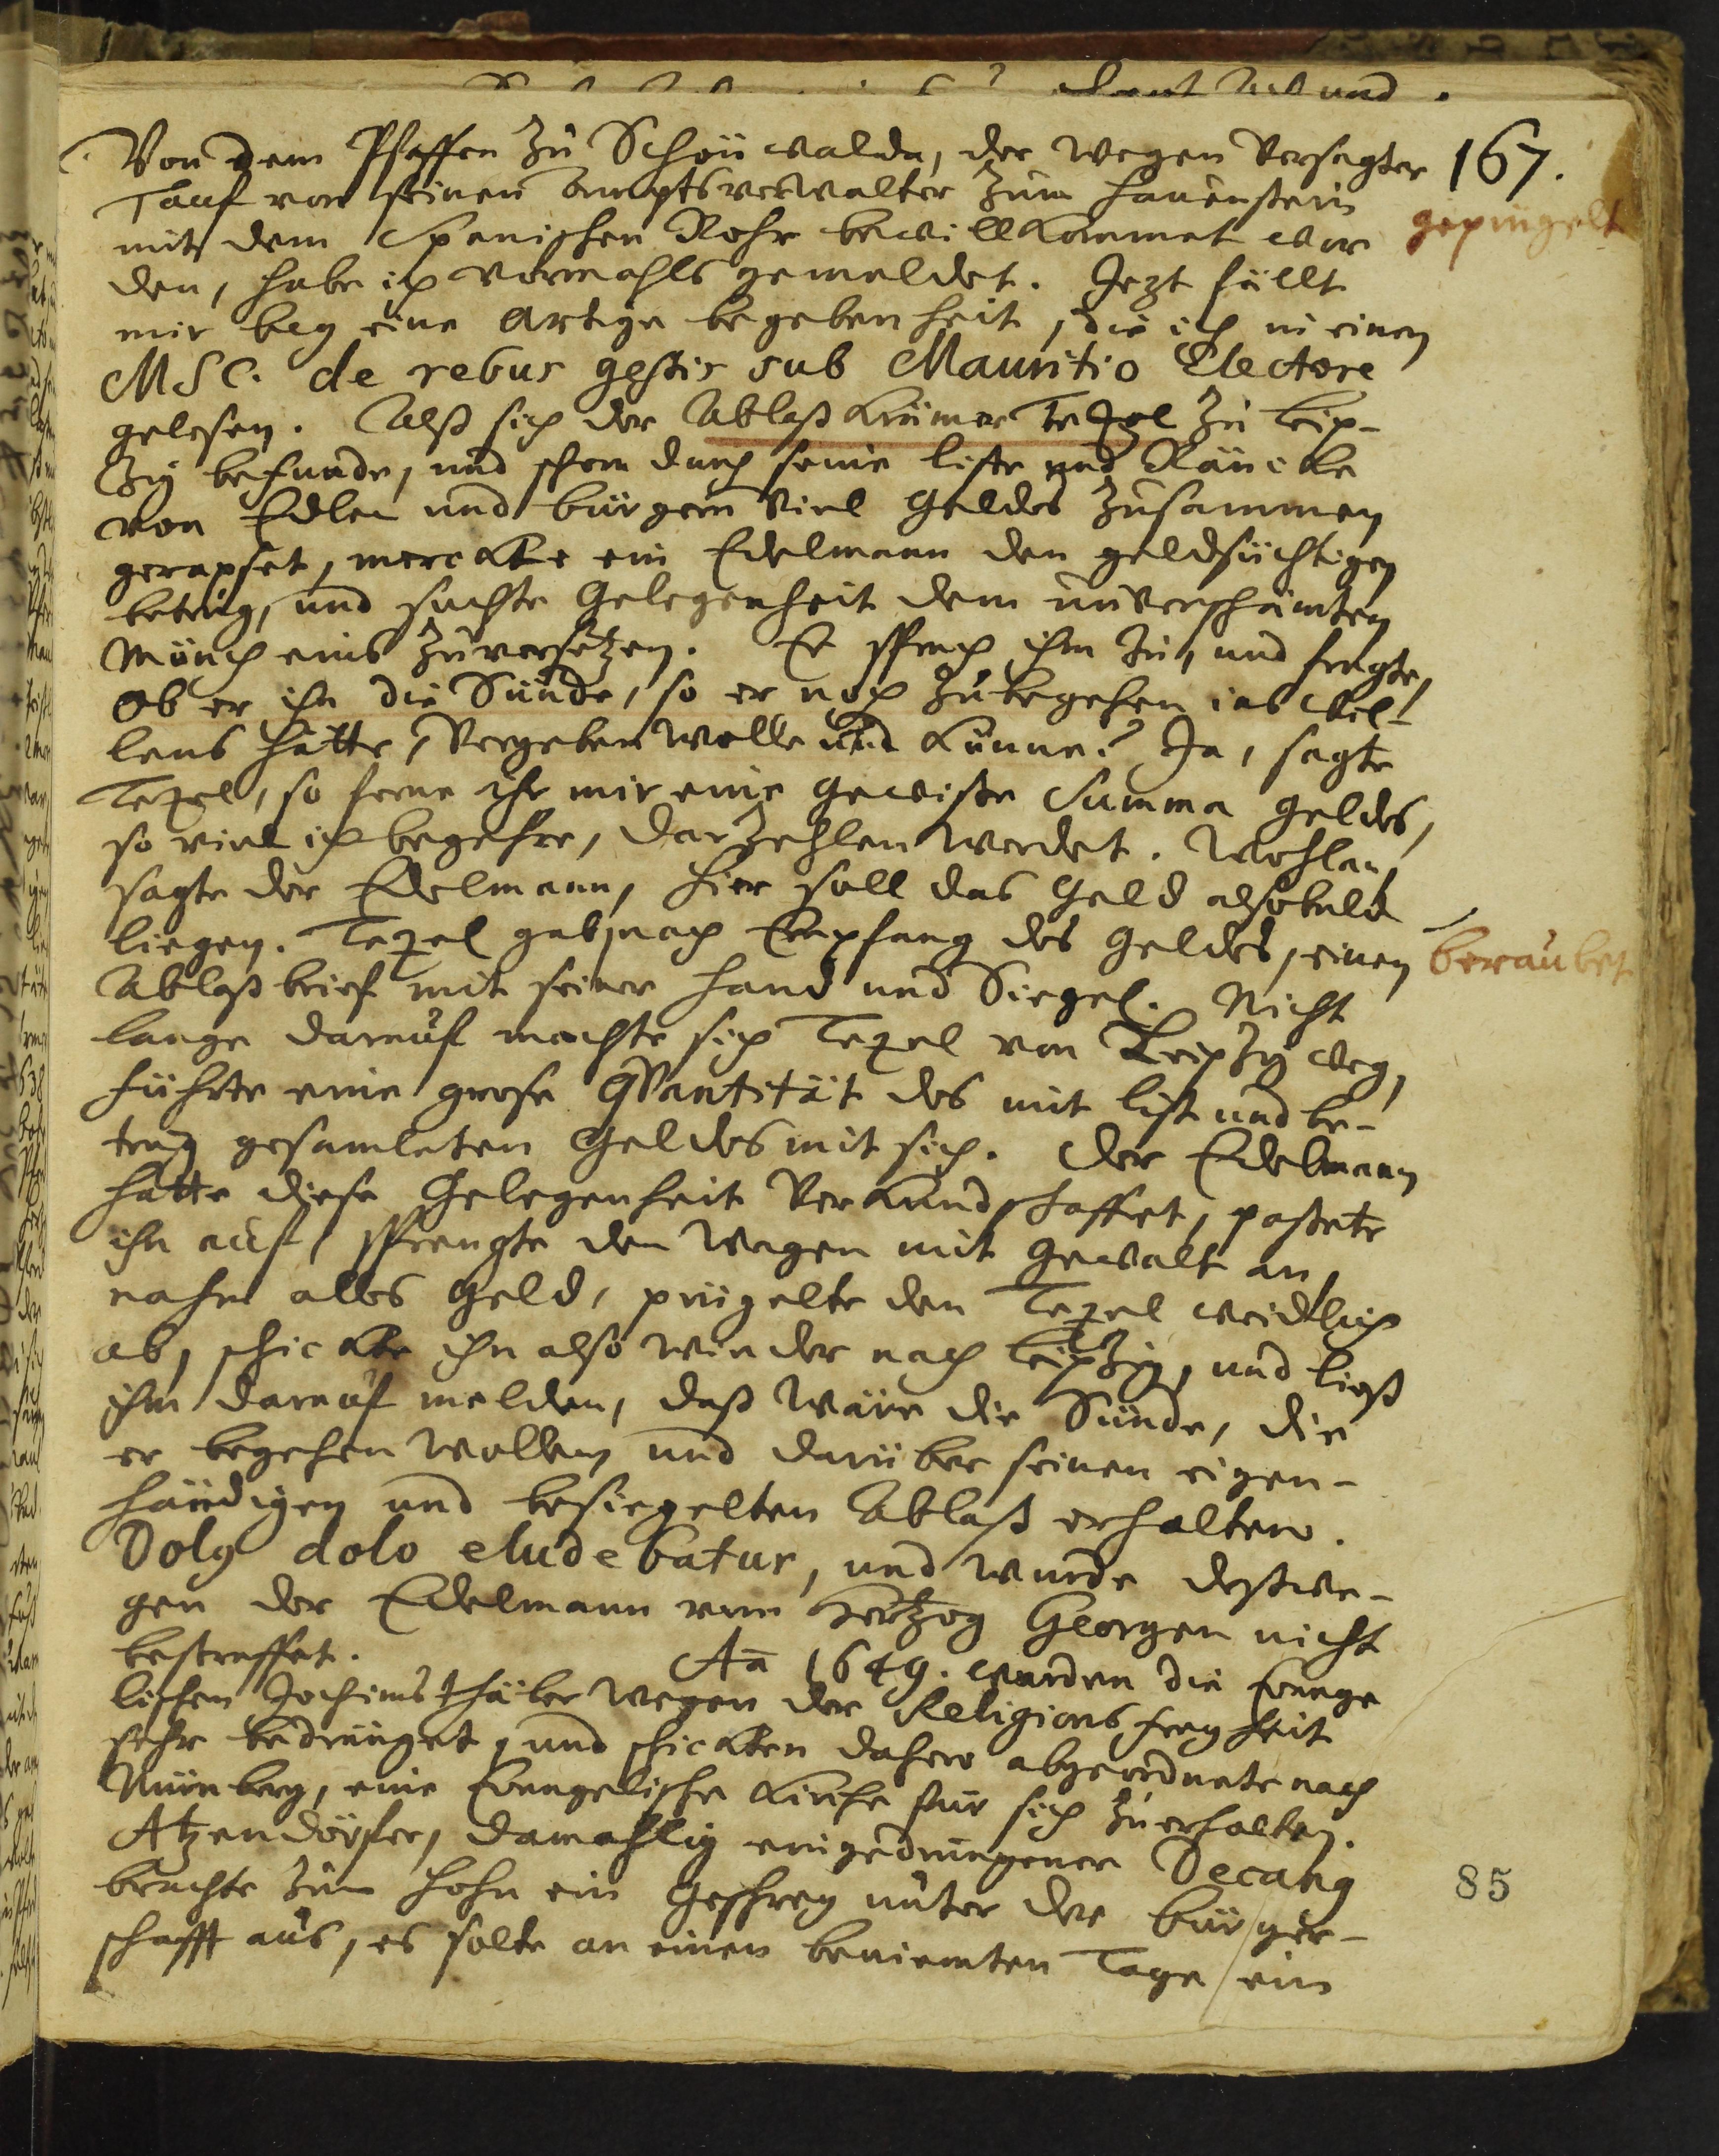 Von dem Pfaffen zu Schönwalda, der wegen versagter 167.
Tauf von seinen Amptsverwalter zum Hauenstein
mit dem Spanischen Rohr bewillkommet wor geprügelt
den, habe ich vormahls gemeldet. Jezt fällt
mir bey eine artige begebenheit, die ich in einen
MSC. de rebus gestis sub Mauritio Electore
gelesen. Alß sich der Ablaß Krämer Tezel zu Leip-
zig befunde, und schon durch seine liste und Räncke
von Edlen und bürgern viel Geldes zusammen
gerapset, merckte ein Edelmann den geldsüchtigen
betrug, und suchte Gelegenheit dem unverschämten
Münch eins zuversetzen. Er sprach ihm zu, und fragte,
ob er ihn die Sünde, so er noch zubegehen ins Wil-
lens hätte, vergeben wolle und könne? Ja, sagte
Tezel, so ferne ihr mir eine gewisse Summa Geldes,
so viel ich begehre, darzehlen werdet. Wohlan,
sagte der Edelmann, hier soll das Geld alsobald
liegen. Tezel gab nach Empfang des Geldes, einen beraubet
Ablaßbrief mit seiner Hand und Siegel. Nicht
lange darauf machte sich Tezel von Leipzig weg,
führte eine grose Quantität des mit list und be-
trug gesamleten Geldes mit sich. Der Edelmann
hatte diese Gelegenheit verkundschaffet, passete
ihn auf, sprengte den Wagen mit Gewalt an,
nahm alles Geld, prügelte den Tezel weidlich
ab, schickte ihn also wieder nach Leipzig, und ließ
ihm darauf melden, daß wäre die Sünde, die
er begehen wollen, und darüber seinen eigen-
händigen und besiegelten Ablaß erhalten.
Dolg dolo eludebatur, und wurde deßwe-
gen der Edelmann vom Hertzog Georgen nicht
bestraffet. Aō 1649. wurden die Evange
lischen Jochimsthäler wegen der Religionsfreyheit
sehr bedränget, und schickten dahero abgeordnete nach
Nürnberg, eine Evangelische Kirche für sich zuerhalten.
Atzendörfer, damahlig eingedrungener Decang
brachte zum Hohn ein Geschrey unter der bürger- 85
schafft aus, es solte an einen beniemten Tage ein